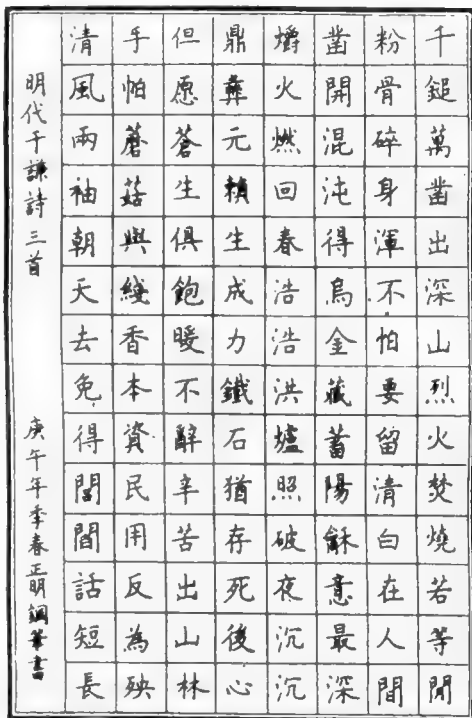 千鎚萬鑿出深山烈火焚燒若等閒
粉骨碎身渾不怕要留清白在人間
鑿開混沌得烏金藏蓄陽龢意最深
爝火燃回春浩浩洪爐照破夜沉沉
鼎彝元賴生成力鐵石猶存死後心
但愿蒼生俱飽暖不辭辛苦出山林
手帕蘑菇與線香本資民用反為殃
清風兩袖朝天去免得閭閻話短長
明代于謙詩三首 庚午年季春正明鋼筆書